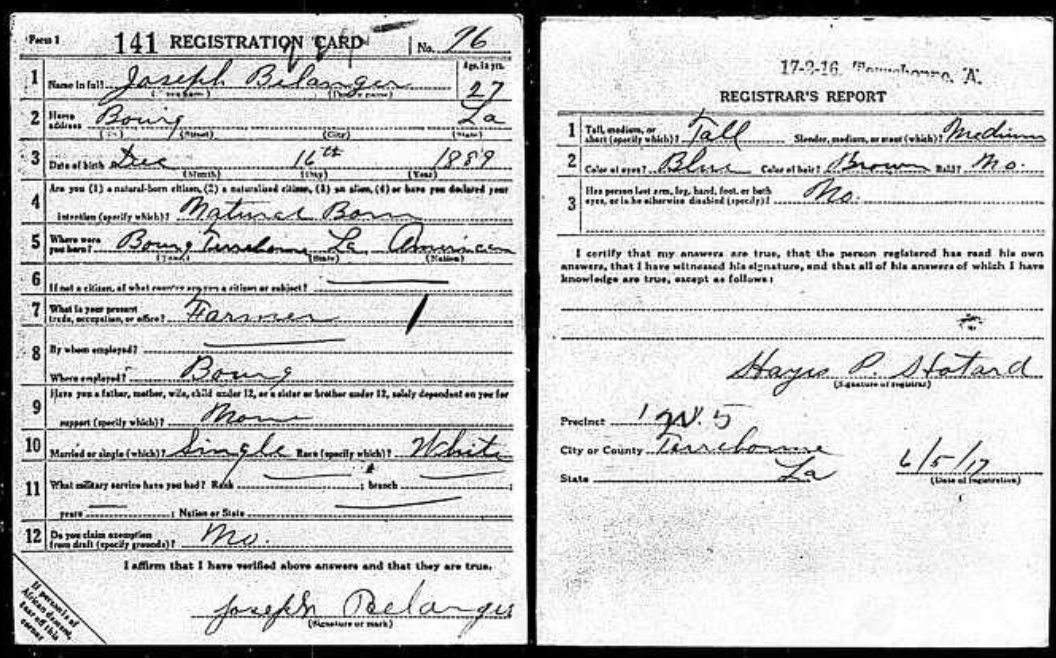 Form 1 141 REGISTRATION CARD No. 76
1 Name in full Joseph Belanger Age, in yrs. 27
(Given name) (Family name)
2 Home address Bourg La
(No.) (Street) (City) (State)
3 Date of birth Dec 16th 1889
(Month) (Day) (Year)
4 Are you (1) a natural-born citizen, (2) a naturalized citizen, (3) an alien, (4) or have you declared your
intention (specify which)? Natural Born
5 Where were you born? Bourg Terrebonne La American
(Town) (State) (Nation)
6 If not a citizen, of what country are you a citizen or subject?
7 What is your present trade, occupation, or office? Farmer
8 By whom employed?
Where employed? Bourg
9 Have you a father, mother, wife, child under 12, or a sister or brother under 12, solely dependent on you for
support (specify which)? None
10 Married or single (which)? Single Race (specify which)? White
11 What military service have you had? Rank ; branch ;
years ; Nation or State
12 Do you claim exemption from draft (specify grounds)? No.
I affirm that I have verified above answers and that they are true.
Joseph Belanger
(Signature or mark)
If person is of
African descent,
tear off this
corner
17-2-16. A.
REGISTRAR'S REPORT
1 Tall, medium, or short (specify which)? Tall Slender, medium, or stout (which)? Medium
2 Color of eyes? Blue Color of hair? Brown Bald? No.
3 Has person lost arm, leg, hand, foot, or both
eyes, or is he otherwise disabled (specify)? No.
I certify that my answers are true, that the person registered has read his own
answers, that I have witnessed his signature, and that all of his answers of which I have
knowledge are true, except as follows:
Hayes P. Statard
(Signature of registrar)
Precinct W. 5
City or County Terrebonne
State La 6/5/17
(Date of registration)